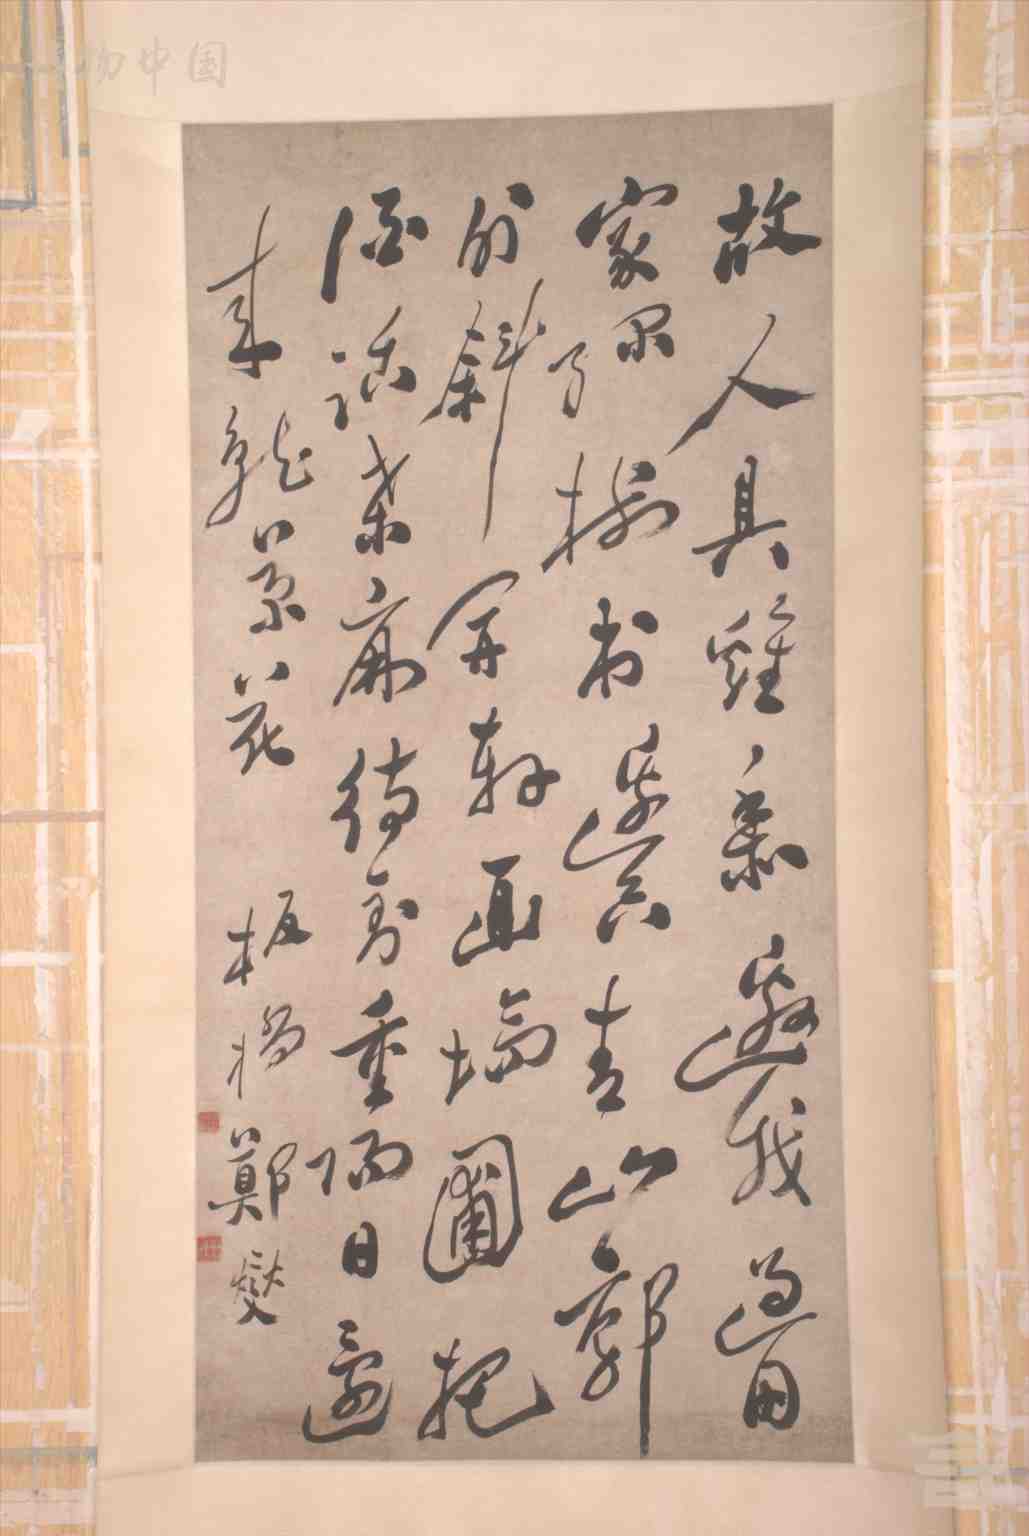 故人具雞黍邀我過田
家綠樹村邊合青山郭
外斜開軒面場圃把
酒話桑麻待到重陽日還
來就菊花 板橋鄭燮
物中国